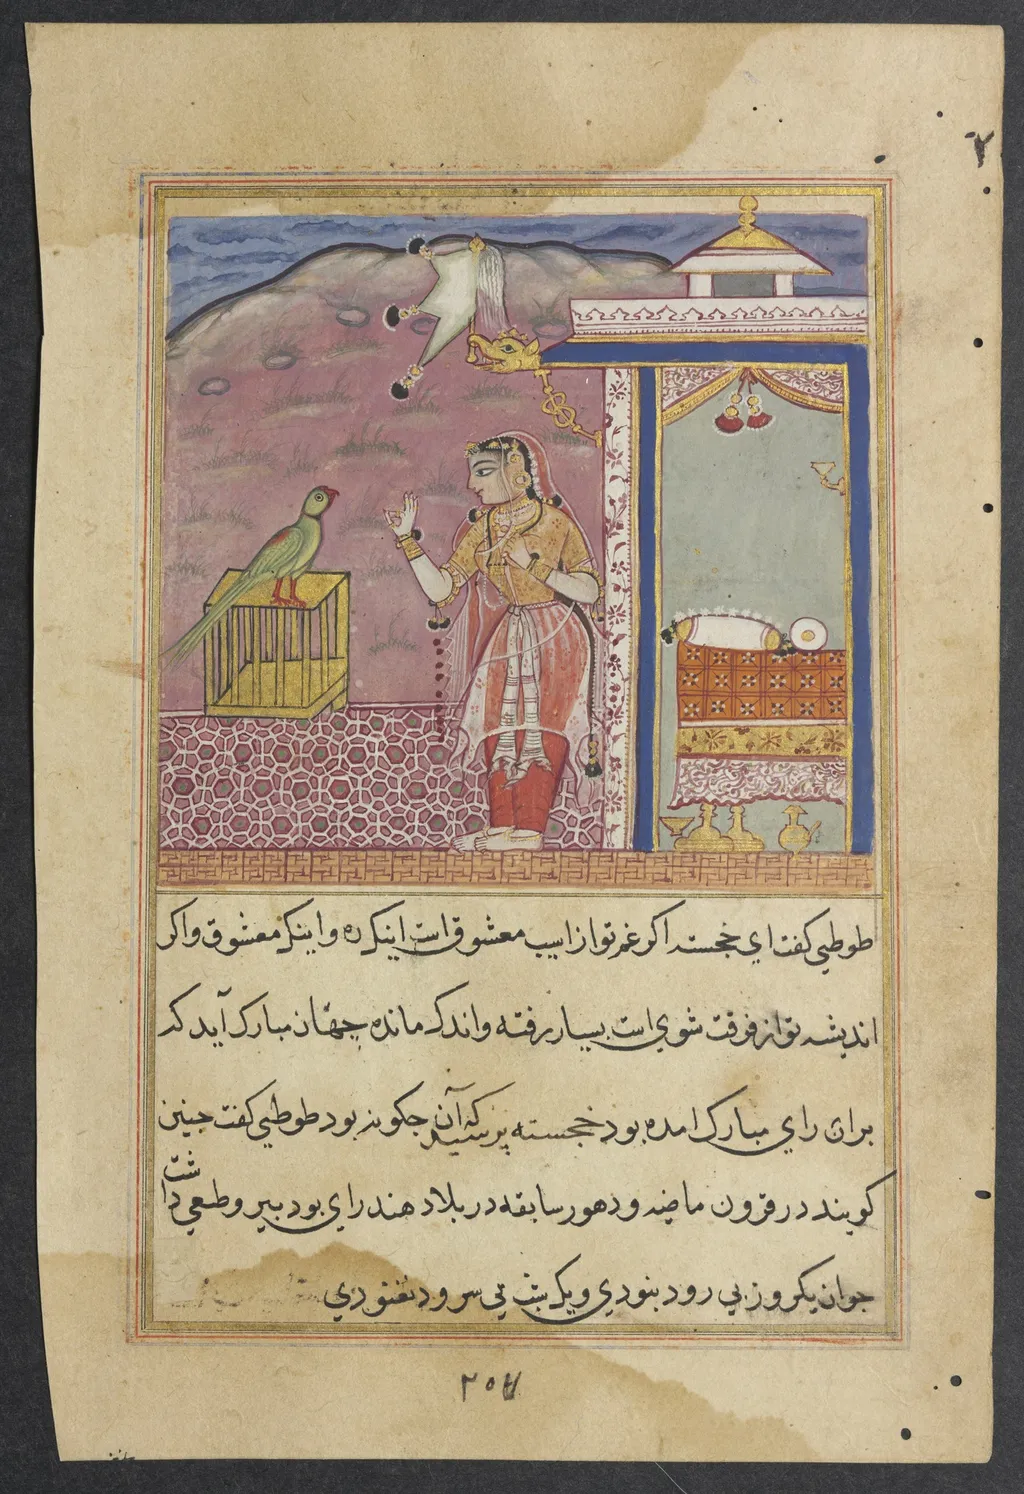 طوطی کفت ای خجسته اکر غم تو از اسیب معشوق است اینک ره و اینک معشوق و اکر
اندیشه تو از فرقت شوی است بسیار رفته و اندک مانده جهان مبارک آید که
بران رای مبارک امده بود خجسته پرسید که آن چکونه بود طوطی کفت چنین
کویند در قرون ماضیه و دهور سابقه در بلاد هند رای بود پیر و طبعی داشت
جوان یکروز بی رود بنودی و یک شب بی سرود نغنودی
۲۰۷